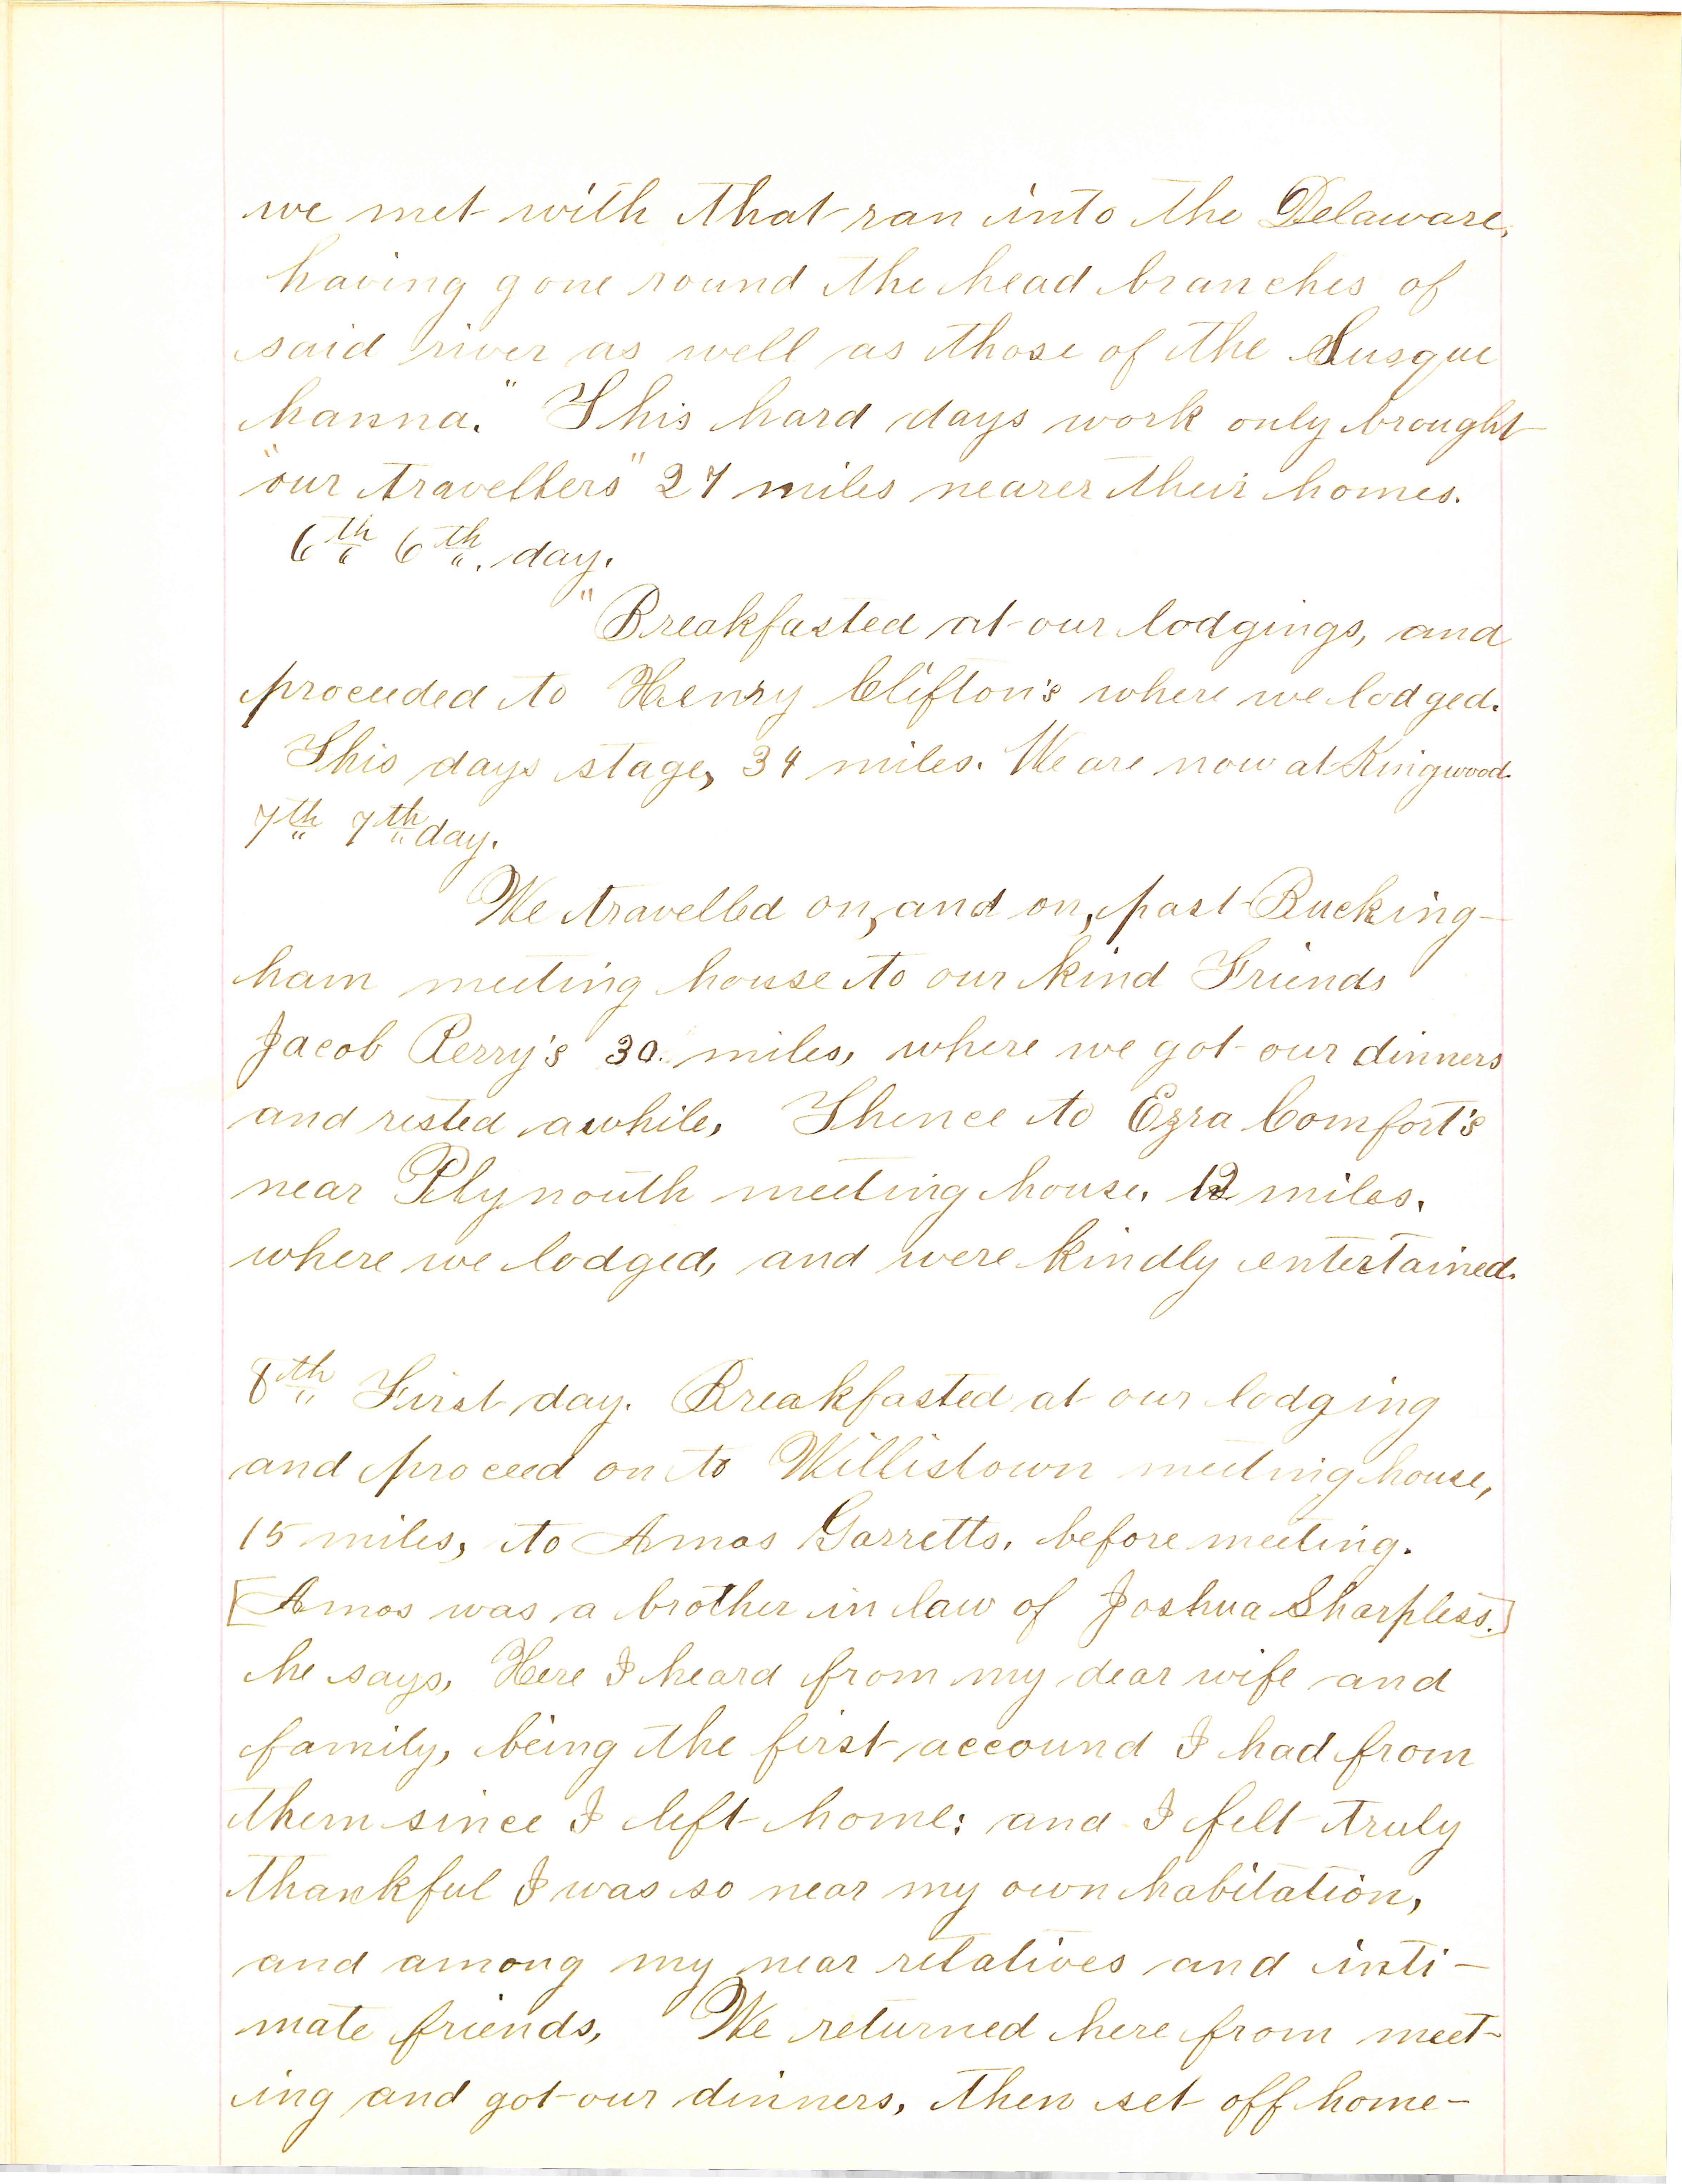 we met with that ran into the Delaware,
having gone round the head branches of
said river as well as those of the Susque
hanna." This hard days work only brought
"our travellers" 27 miles nearer their homes.
6th 6th. day.
"Breakfasted at our lodgings, and
proceeded to Henry Clifton's where we lodged.
This days stage, 34 miles. We are now at Kingwood.
7th 7th day.
We travelled on, and on, past Bucking-
ham meeting house to our kind Friends
Jacob Perry's 30. miles, where we got our dinners
and rested awhile, Thence to Ezra Comfort's
near Plymouth meeting house, 12 miles.
where we lodged, and were kindly entertained.
8th First day. Breakfasted at our lodging
and proceed on to Willistown meeting house,
15 miles, to Amos Garretts, before meeting.
[Amos was a brother in law of Joshua Sharpless.]
he says, Here I heard from my dear wife and
family, being the first accound I had from
them since I left home; and I felt truly
thankful I was so near my own habitation,
and among my near relatives and inti-
mate friends, We returned here from meet-
ing and got our dinners, then set off home-